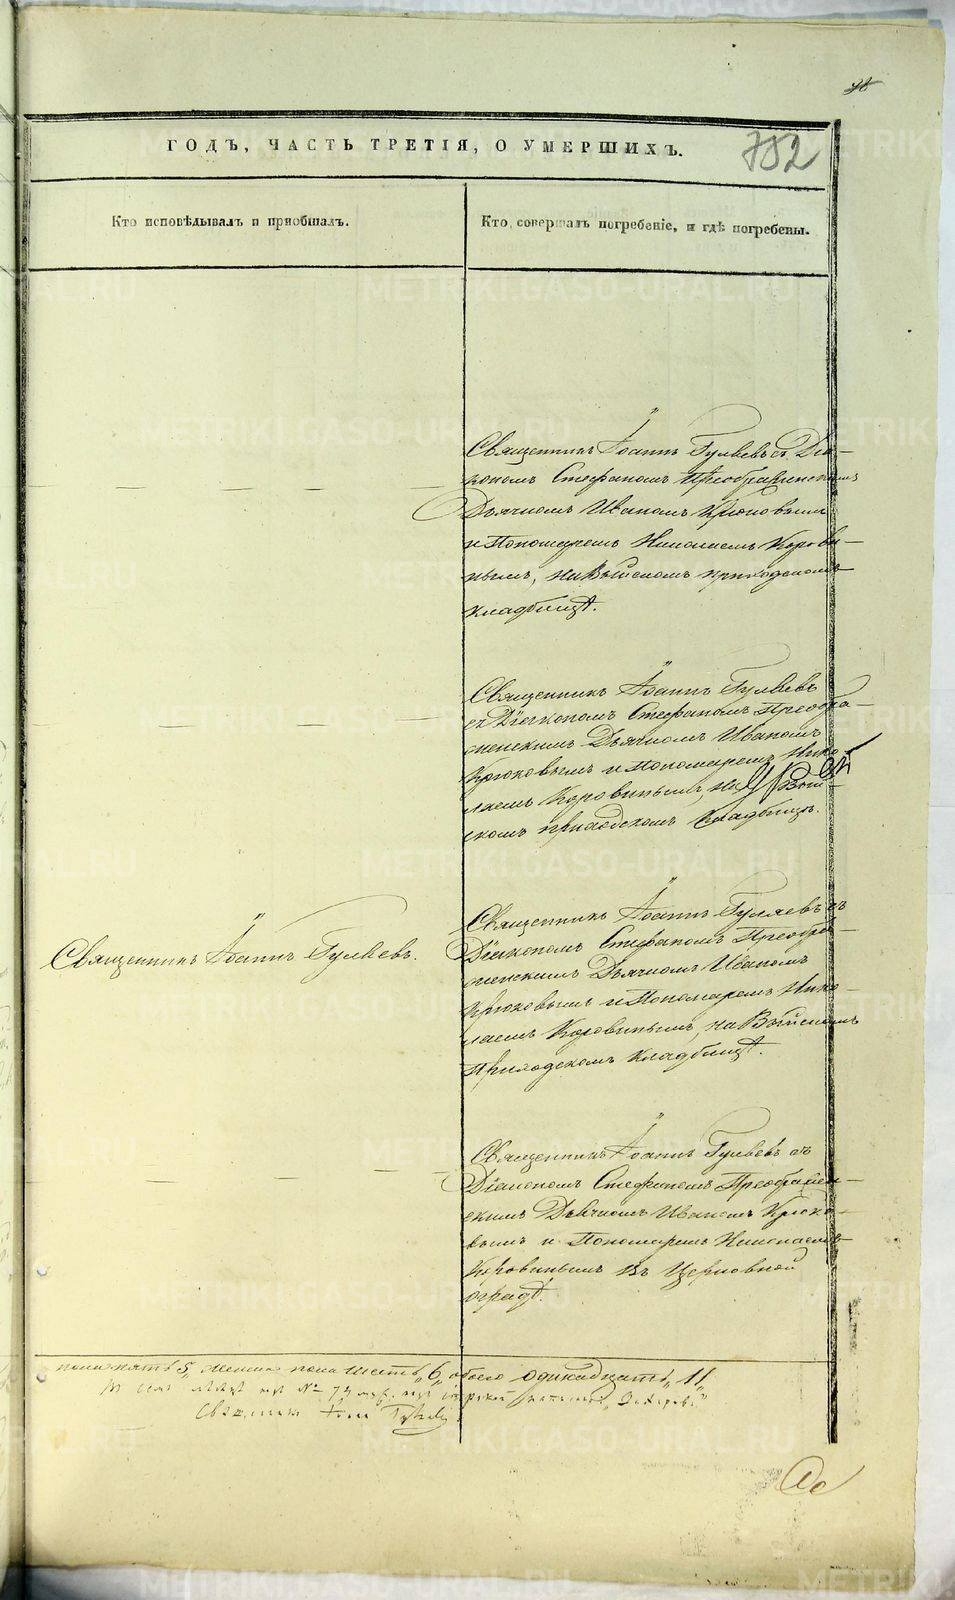 38
ГОДЪ, ЧАСТЬ ТРЕТІЯ, О УМЕРШИХЪ.
782
Кто исповѣдывалъ и пріобщалъ.
Кто совершалъ погребеніе, и гдѣ погребены.
Священникъ Іоаннъ Гуляевъ съ Діа-
кономъ Стефаномъ Преображенскимъ
Дьячкомъ Иваномъ Крюковымъ
и Пономаремъ Николаемъ Корови-
нымъ, на Выйскомъ приходскомъ
кладбищѣ.
Священникъ Іоаннъ Гуляевъ
съ Діакономъ Стефаномъ Преобра-
женскимъ Дьячкомъ Иваномъ
Крюковымъ и Пономаремъ Нико-
лаемъ Коровинымъ, на Вый-
скомъ приходскомъ кладбищѣ.
Священникъ Іоаннъ Гуляевъ.
Священникъ Іоаннъ Гуляевъ съ
Діакономъ Стефаномъ Преобра-
женскимъ Дьячкомъ Иваномъ
Крюковымъ и Пономаремъ Нико-
лаемъ Коровинымъ, на Выйскомъ
Приходскомъ кладбищѣ.
Священникъ Іоаннъ Гуляевъ съ
Діакономъ Стефаномъ Преображен-
скимъ Дьячкомъ Иваномъ Крюко-
вымъ и Пономаремъ Николаемъ
Коровинымъ въ Церковной
оградѣ.
пола пять 5, женска пола шесть „6„ обоего одинадцать „11„
Въ семъ
Священникъ Іоаннъ Гуляевъ